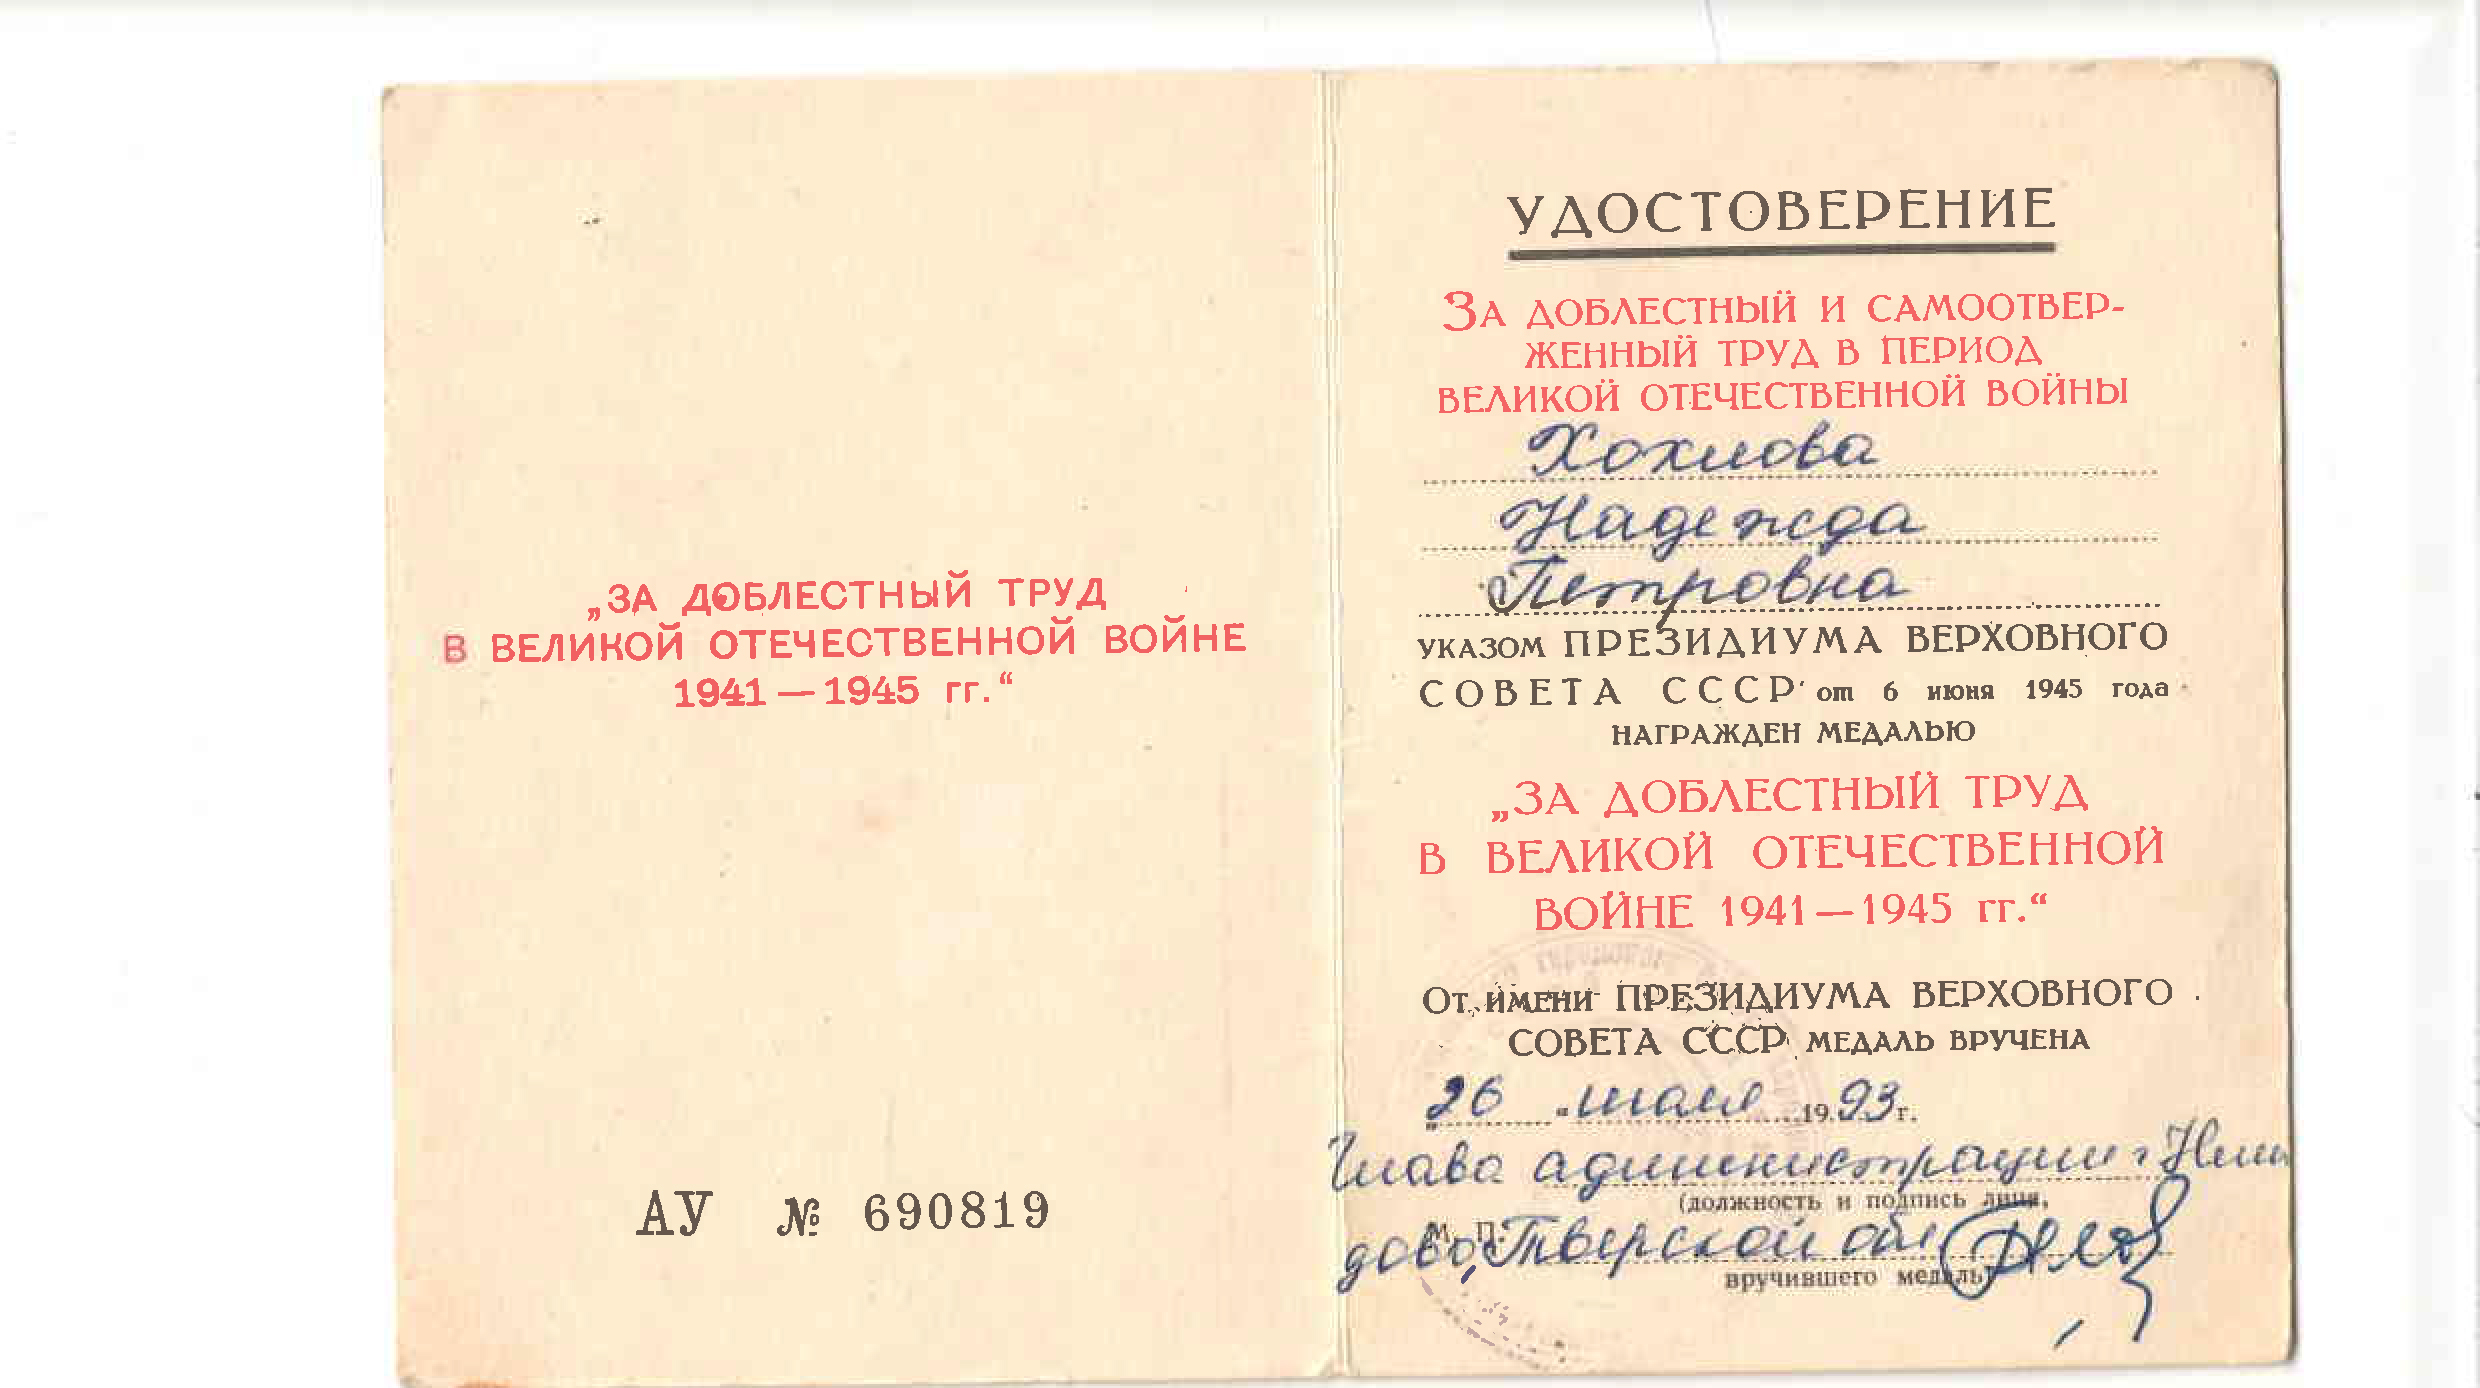 „ЗА ДОБЛЕСТНЫЙ ТРУД
В ВЕЛИКОЙ ОТЕЧЕСТВЕННОЙ ВОЙНЕ
1941—1945 гг.“
АУ № 690819
УДОСТОВЕРЕНИЕ
ЗА ДОБЛЕСТНЫЙ И САМООТВЕР-
ЖЕННЫЙ ТРУД В ПЕРИОД
ВЕЛИКОЙ ОТЕЧЕСТВЕННОЙ ВОЙНЫ
Хохлова
Надежда
Петровна
УКАЗОМ ПРЕЗИДИУМА ВЕРХОВНОГО
СОВЕТА СССР от 6 июня 1945 года
НАГРАЖДЕН МЕДАЛЬЮ
„ЗА ДОБЛЕСТНЫЙ ТРУД
В ВЕЛИКОЙ ОТЕЧЕСТВЕННОЙ
ВОЙНЕ 1941—1945 гг.“
ОТ ИМЕНИ ПРЕЗИДИУМА ВЕРХОВНОГО
СОВЕТА СССР МЕДАЛЬ ВРУЧЕНА
„26“ июля 1993 г.
Глава администрации г Нели
(должность и подпись лица,
М. П.
дово, Тверской обл
вручившего медаль)